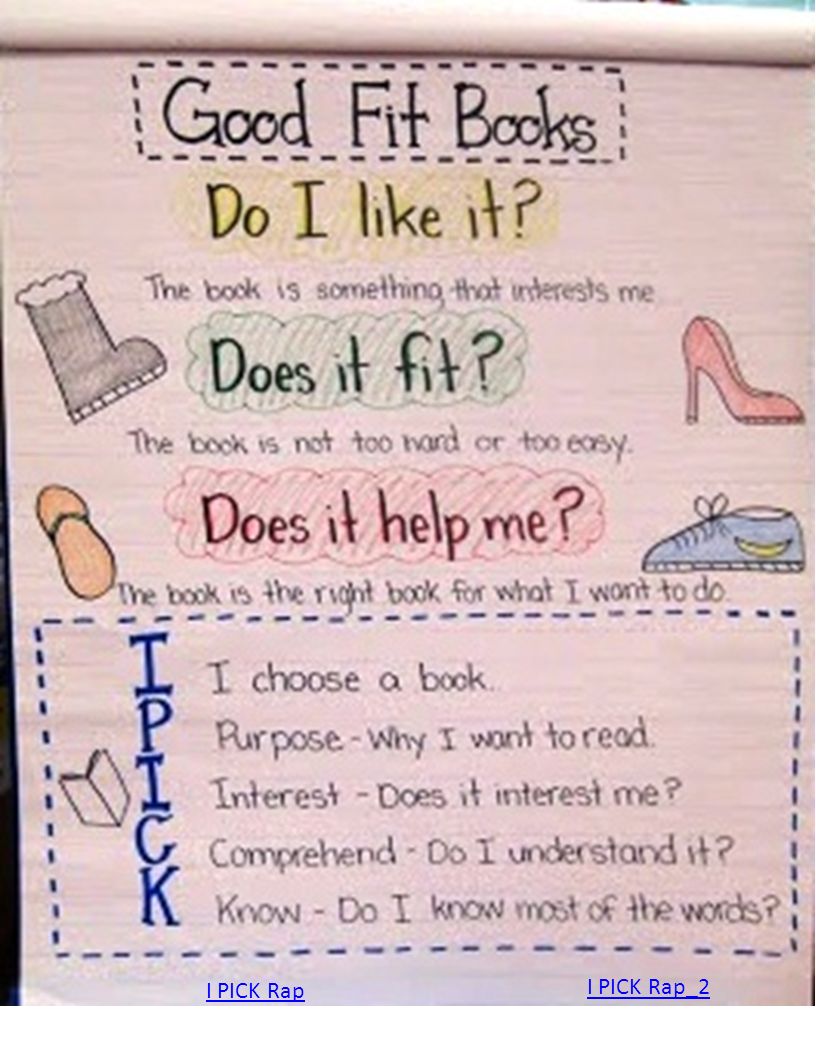 Good Fit Books
Do I like it?
The book is something that interests me
Does it fit?
The book is not too hard or too easy.
Does it help me?
The book is the right book for what I want to do.
I PICK
I choose a book.
Purpose - Why I want to read.
Interest - Does it interest me?
Comprehend - Do I understand it?
Know - Do I know most of the words?
I PICK Rap
I PICK Rap_2